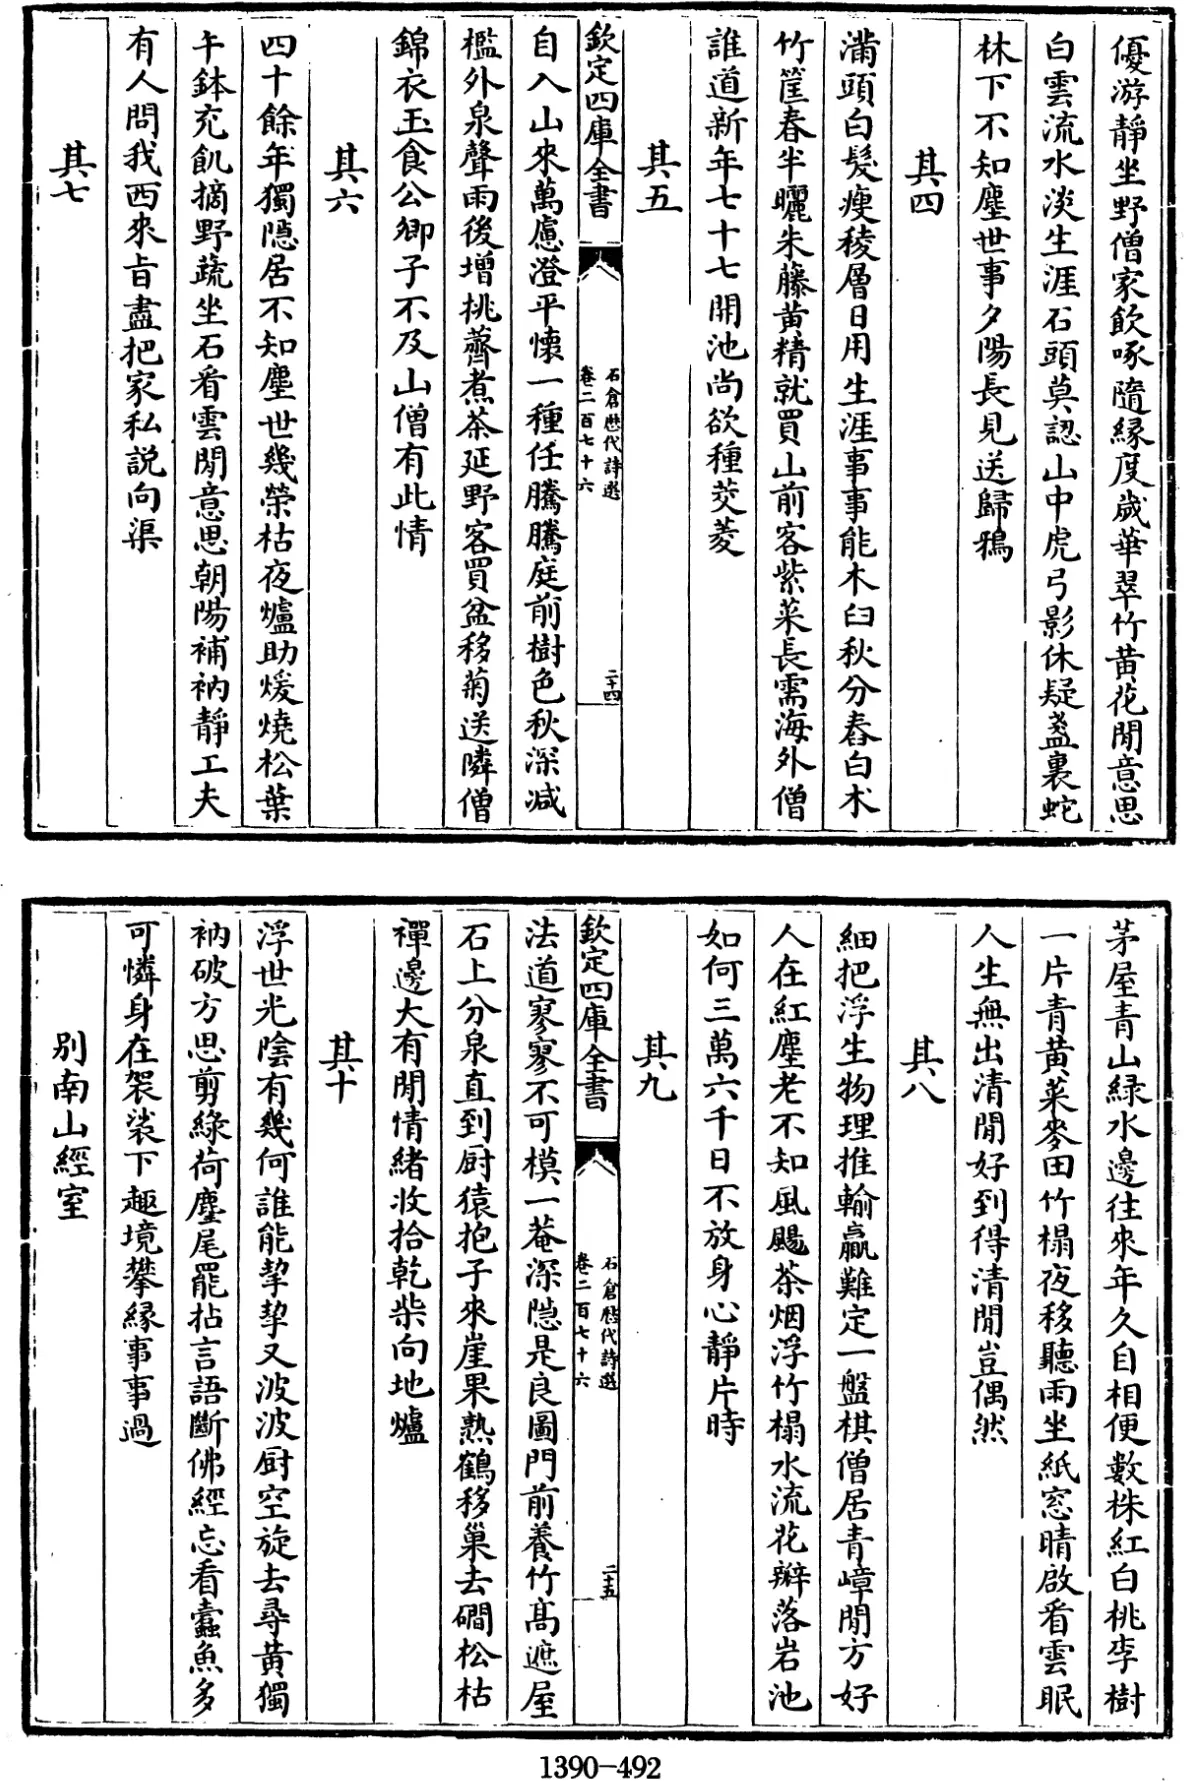 優游靜坐野僧家飲啄隨緣度歲華翠竹黄花閒意思
白雲流水淡生涯石頭莫認山中虎弓影休疑盞裏蛇
林下不知塵世事夕陽長見送歸鴉
其四
滿頭白髮瘦稜層日用生涯事事能木臼秋分舂白朮
竹筐春半曬朱藤黄精就買山前客紫菜長需海外僧
誰道新年七十七開池尚欲種茭菱
其五
欽定四庫全書
石倉歷代詩選
卷二百七十六
二十四
自入山來萬慮澄平懷一種任騰騰庭前樹色秋深减
檻外泉聲雨後增挑薺煮茶延野客買盆移菊送隣僧
錦衣玉食公卿子不及山僧有此情
其六
四十餘年獨隠居不知塵世幾榮枯夜爐助煖燒松葉
午鉢充飢摘野蔬坐石看雲閒意思朝陽補衲靜工夫
有人問我西來旨盡把家私説向渠
其七
茅屋青山緑水邊往來年久自相便數株紅白桃李樹
一片青黄菜麥田竹榻夜移聽雨坐紙窓晴啟看雲眠
人生無出清閒好到得清閒豈偶然
其八
細把浮生物理推輸贏難定一盤棋僧居青嶂閒方好
人在紅塵老不知風颺茶烟浮竹榻水流花瓣落岩池
如何三萬六千日不放身心靜片時
其九
欽定四庫全書
石倉歷代詩選
卷二百七十六
二十五
法道寥寥不可模一菴深隠是良圖門前養竹髙遮屋
石上分泉直到厨猿抱子來崖果熟鶴移巢去磵松枯
禪邊大有閒情緒收拾乾柴向地爐
其十
浮世光陰有幾何誰能挈挈又波波厨空旋去尋黄獨
衲破方思剪綠荷麈尾罷拈言語斷佛經忘看蠹魚多
可憐身在袈裟下趣境攀緣事事過
别南山經室
1390-492